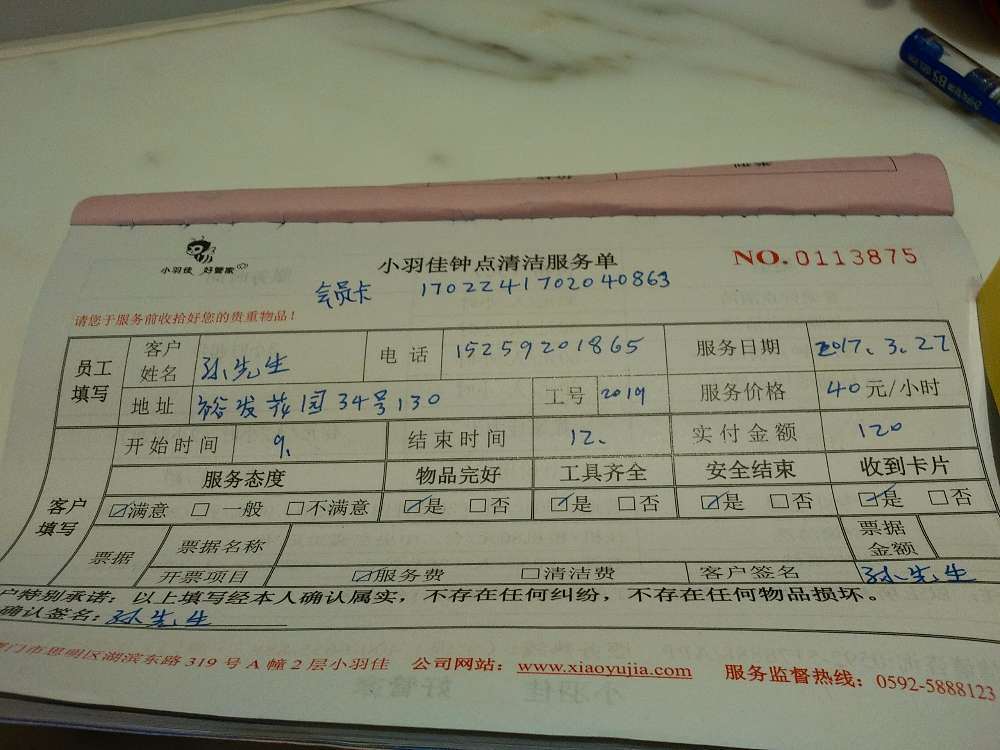 小羽佳 好管家
小羽佳钟点清洁服务单
NO. 0113875
会员卡 1702241702040863
请您于服务前收拾好您的贵重物品!
员工填写 客户姓名 孙先生 电话 15259201865 服务日期 2017.3.27
地址 裕发花园34号130 工号 2019 服务价格 40元/小时
客户填写 开始时间 9. 结束时间 12. 实付金额 120
服务态度 物品完好 工具齐全 安全结束 收到卡片
☑满意 □一般 □不满意 ☑是 □否 ☑是 □否 ☑是 □否 ☑是 □否
票据 票据名称 票据金额
开票项目 ☑服务费 □清洁费 客户签名 孙先生
户特别承诺:以上填写经本人确认属实,不存在任何纠纷,不存在任何物品损坏。
确认签名:孙先生
门市思明区湖滨东路319号A幢2层小羽佳 公司网站:www.xiaoyujia.com 服务监督热线:0592-5888123